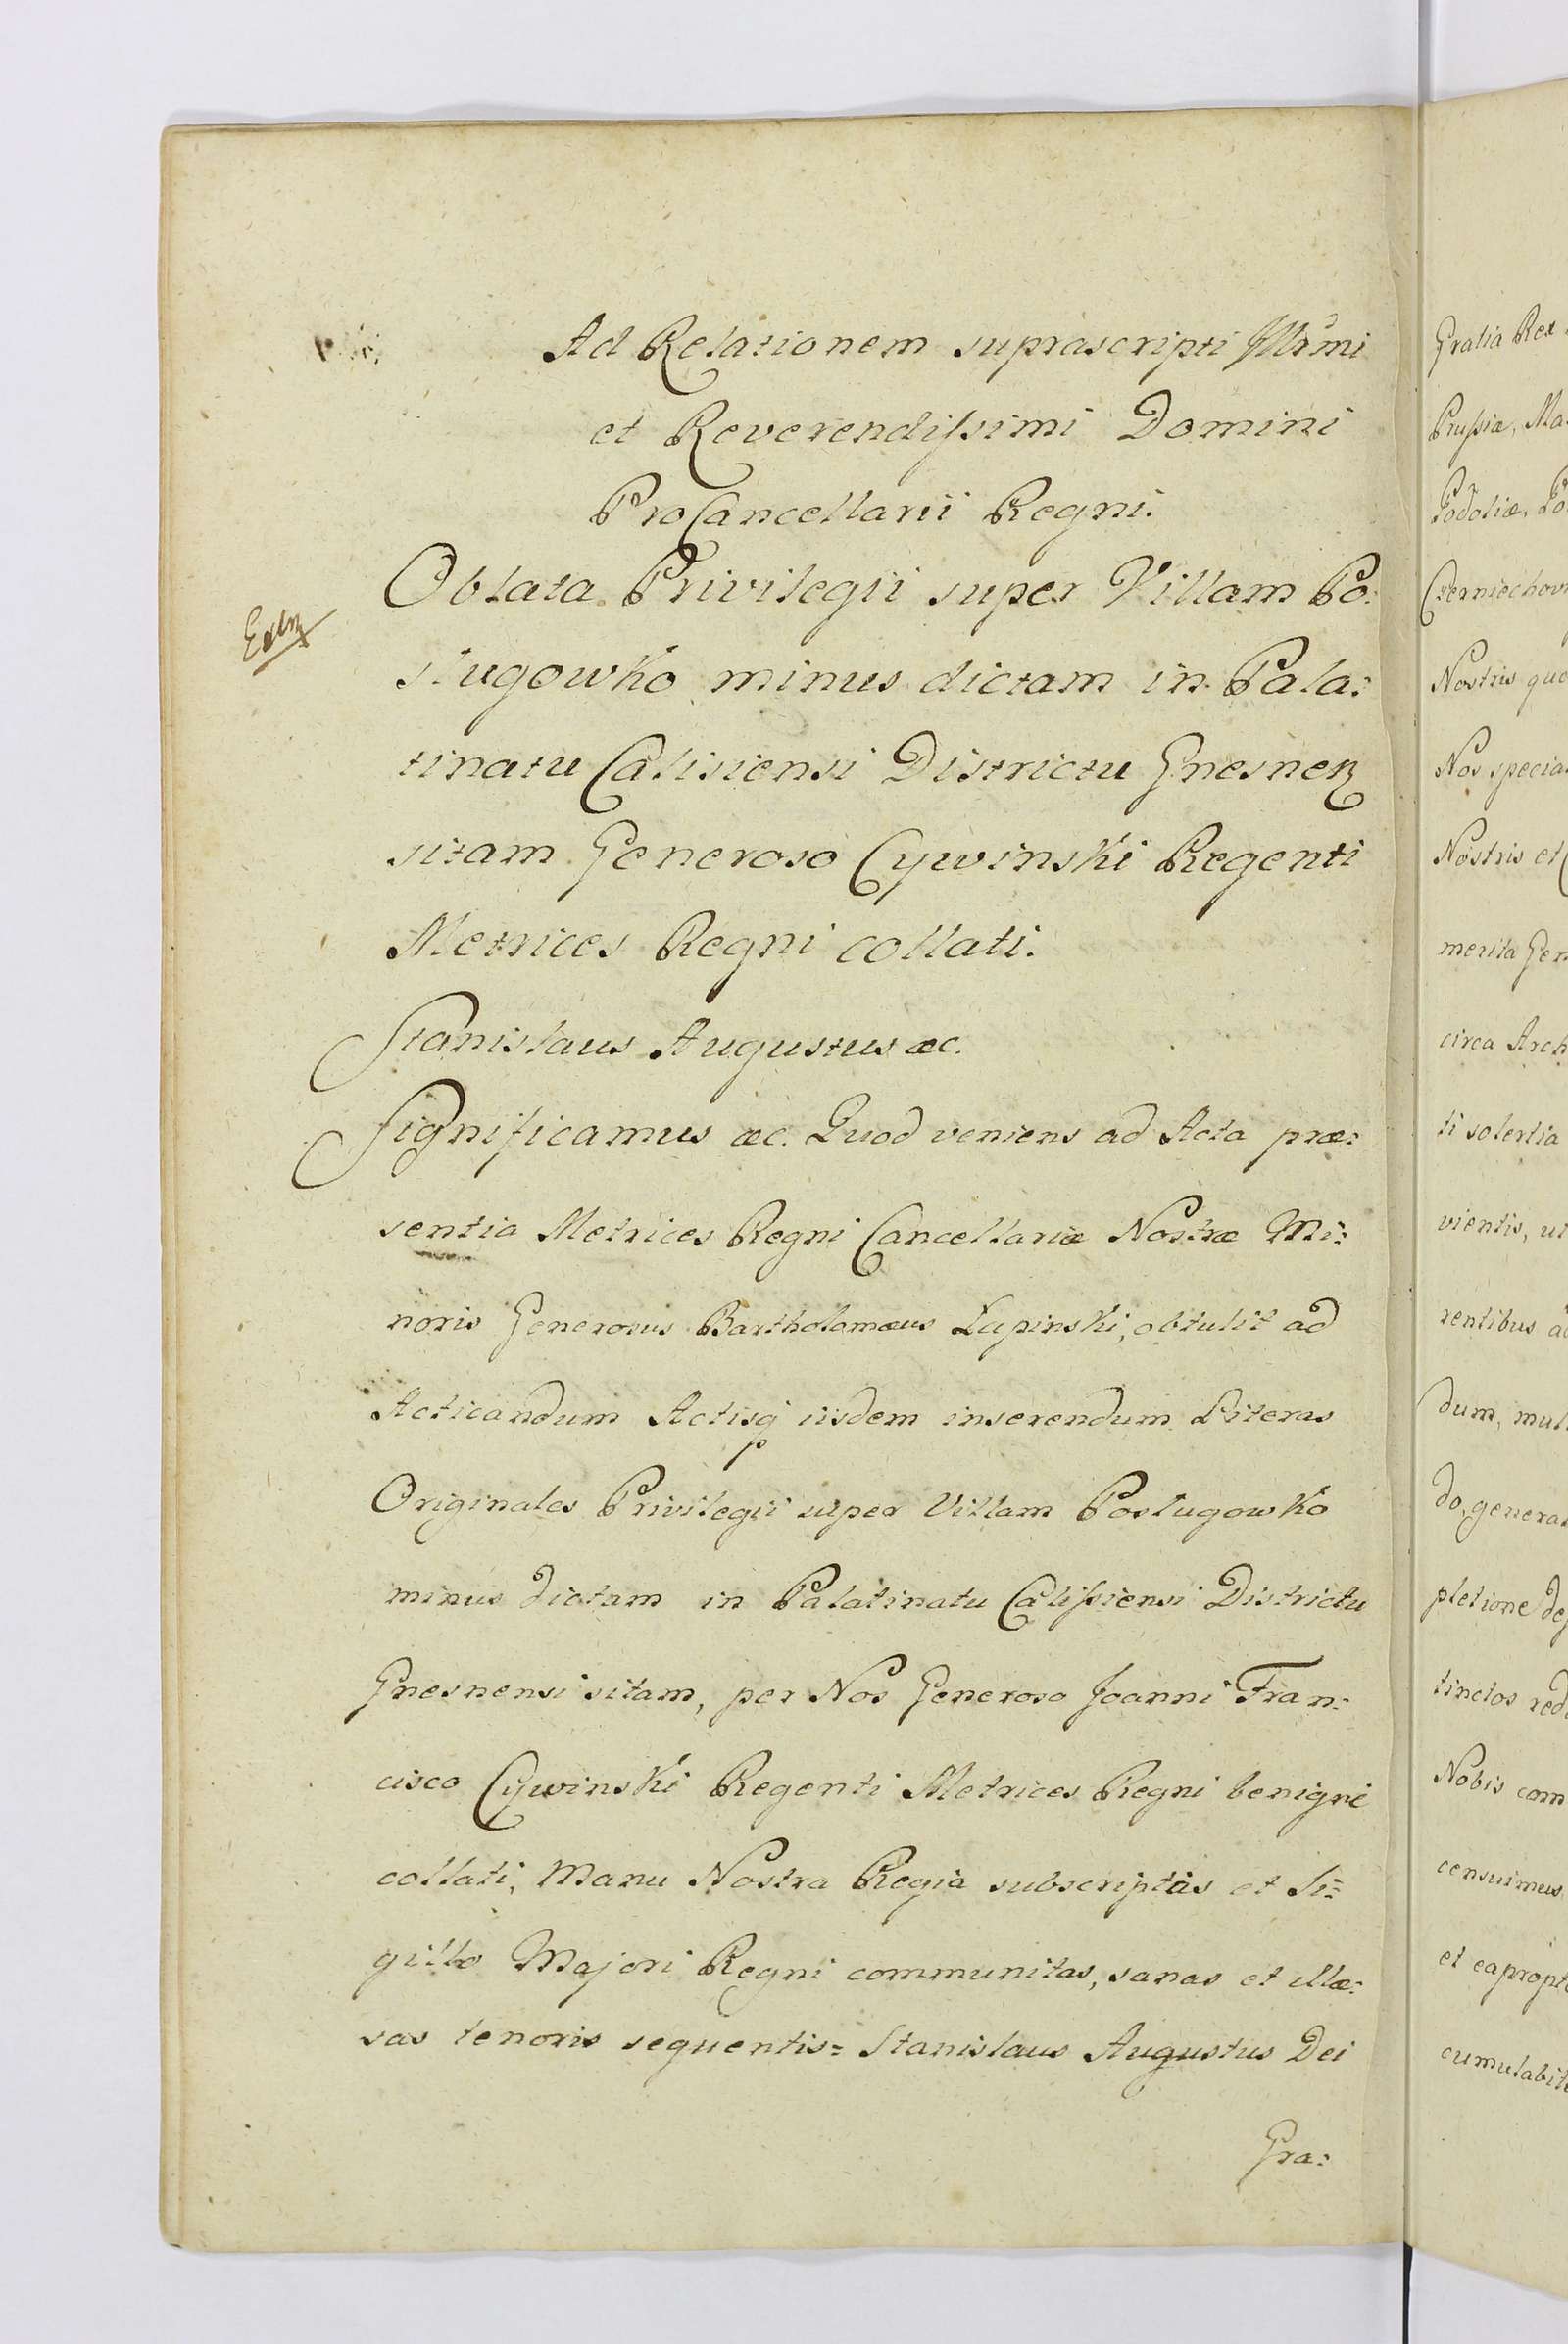 Ad Relationem suprascripti Illrmi
et Reverendiſsimi Domini
ProCancellarii Regni.
Oblata Privilegii super Villam Po:
slugowko minus dictam in Pala:
tinatu Calisiensi Districtu Gnesnen
sitam Generoso Cywinski Regenti
Metrices Regni collati.
Stanislaus Augustus æc.
Significamus æc. Quod veniens ad Acta præ:
sentia Metrices Regni Cancellariæ Nostræ Mi:
noris Generosus Bartholomæus Łapinski, obtulit ad
Acticandum Actisq iisdem inserendum Literas
Originales Privilegii super Villam Poslugowko
minus dictam in Palatinatu Caliſsiensi Districtu
Gnesnensi sitam, per Nos Generoso Joanni Fran:
cisco Cywinski Regenti Metrices Regni benigne
collati, Manu Nostra Regia subscriptas et Si:
gillo Majori Regni communitas, sanas et illæ:
sas tenoris sequentis: Stanislaus Augustus Dei
Gra:
Gratia Rex
Pruſsiæ, Ma
Podoliæ, Po
Czerniechov
Nostris quo
Nos specia
Nostris et
merita Gen
circa Arch
ti solertia
vientis, ut
rentibus ad
dum, mul
do, genera
pletione de
tinctos red
Nobis com
censuimus
et eapropt
cumulabit